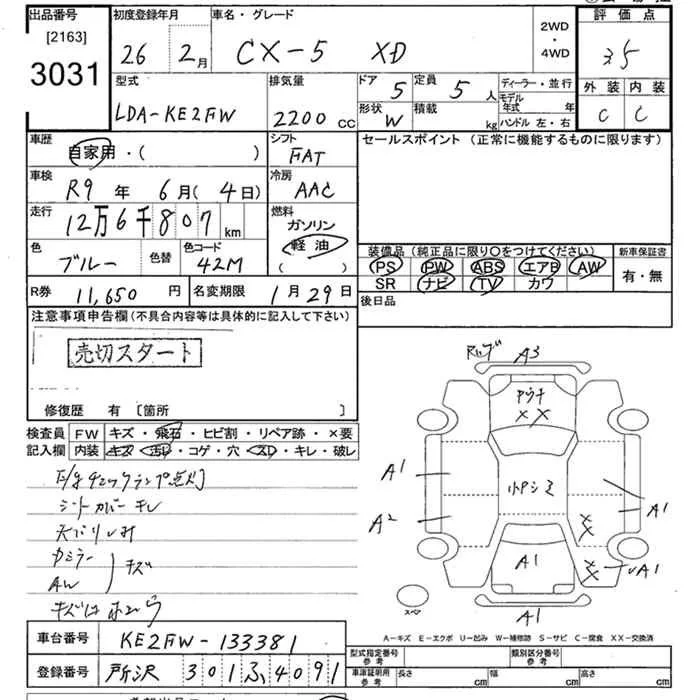 出品番号
[2163]
3031
初度登録年月
26 2月
車名・グレード
CX-5 XD
2WD
・
4WD
評価点
3.5
外装 内装
C C
型式
LDA-KE2FW
排気量
2200 CC
ドア 5
定員 5 人
形状 W
積載 kg
ディーラー・並行
モデル年式 年
ハンドル 左・右
車歴
自家用・( )
シフト
FAT
セールスポイント (正常に機能するものに限ります)
車検
R9 年 6月(4日)
冷房
AAC
走行
12万6千807 km
燃料
ガソリン
軽油
( )
色
ブルー
色替
色コード
42M
装備品(純正品に限り○をつけてください)
PS PW ABS エアB AW
SR ナビ TV カワ
新車保証書
有・無
R券 11,650 円
名変期限 1月29日
後日品
注意事項申告欄(不具合内容等は具体的に記入して下さい)
売切スタート
修復歴 有 [箇所 ]
検査員記入欄
FW キズ・飛石・ヒビ割・リペア跡・×要
内装 キズ・汚れ・コゲ・穴・スレ・キレ・破レ
シートカバー キレ
AW
キズ
A3
XX
A1
A2
小Pシミ
A1
XX
A1
XX
A1
A1
スペア
A-キズ E-エクボ U-凹み W-補修跡 S-サビ C-腐食 XX-交換済
車台番号 KE2FW-133381
登録番号 所沢 301 ふ 4091
型式指定番号
参考
類別区分番号
参考
車庫証明用
参考
長さ cm
幅 cm
高さ cm